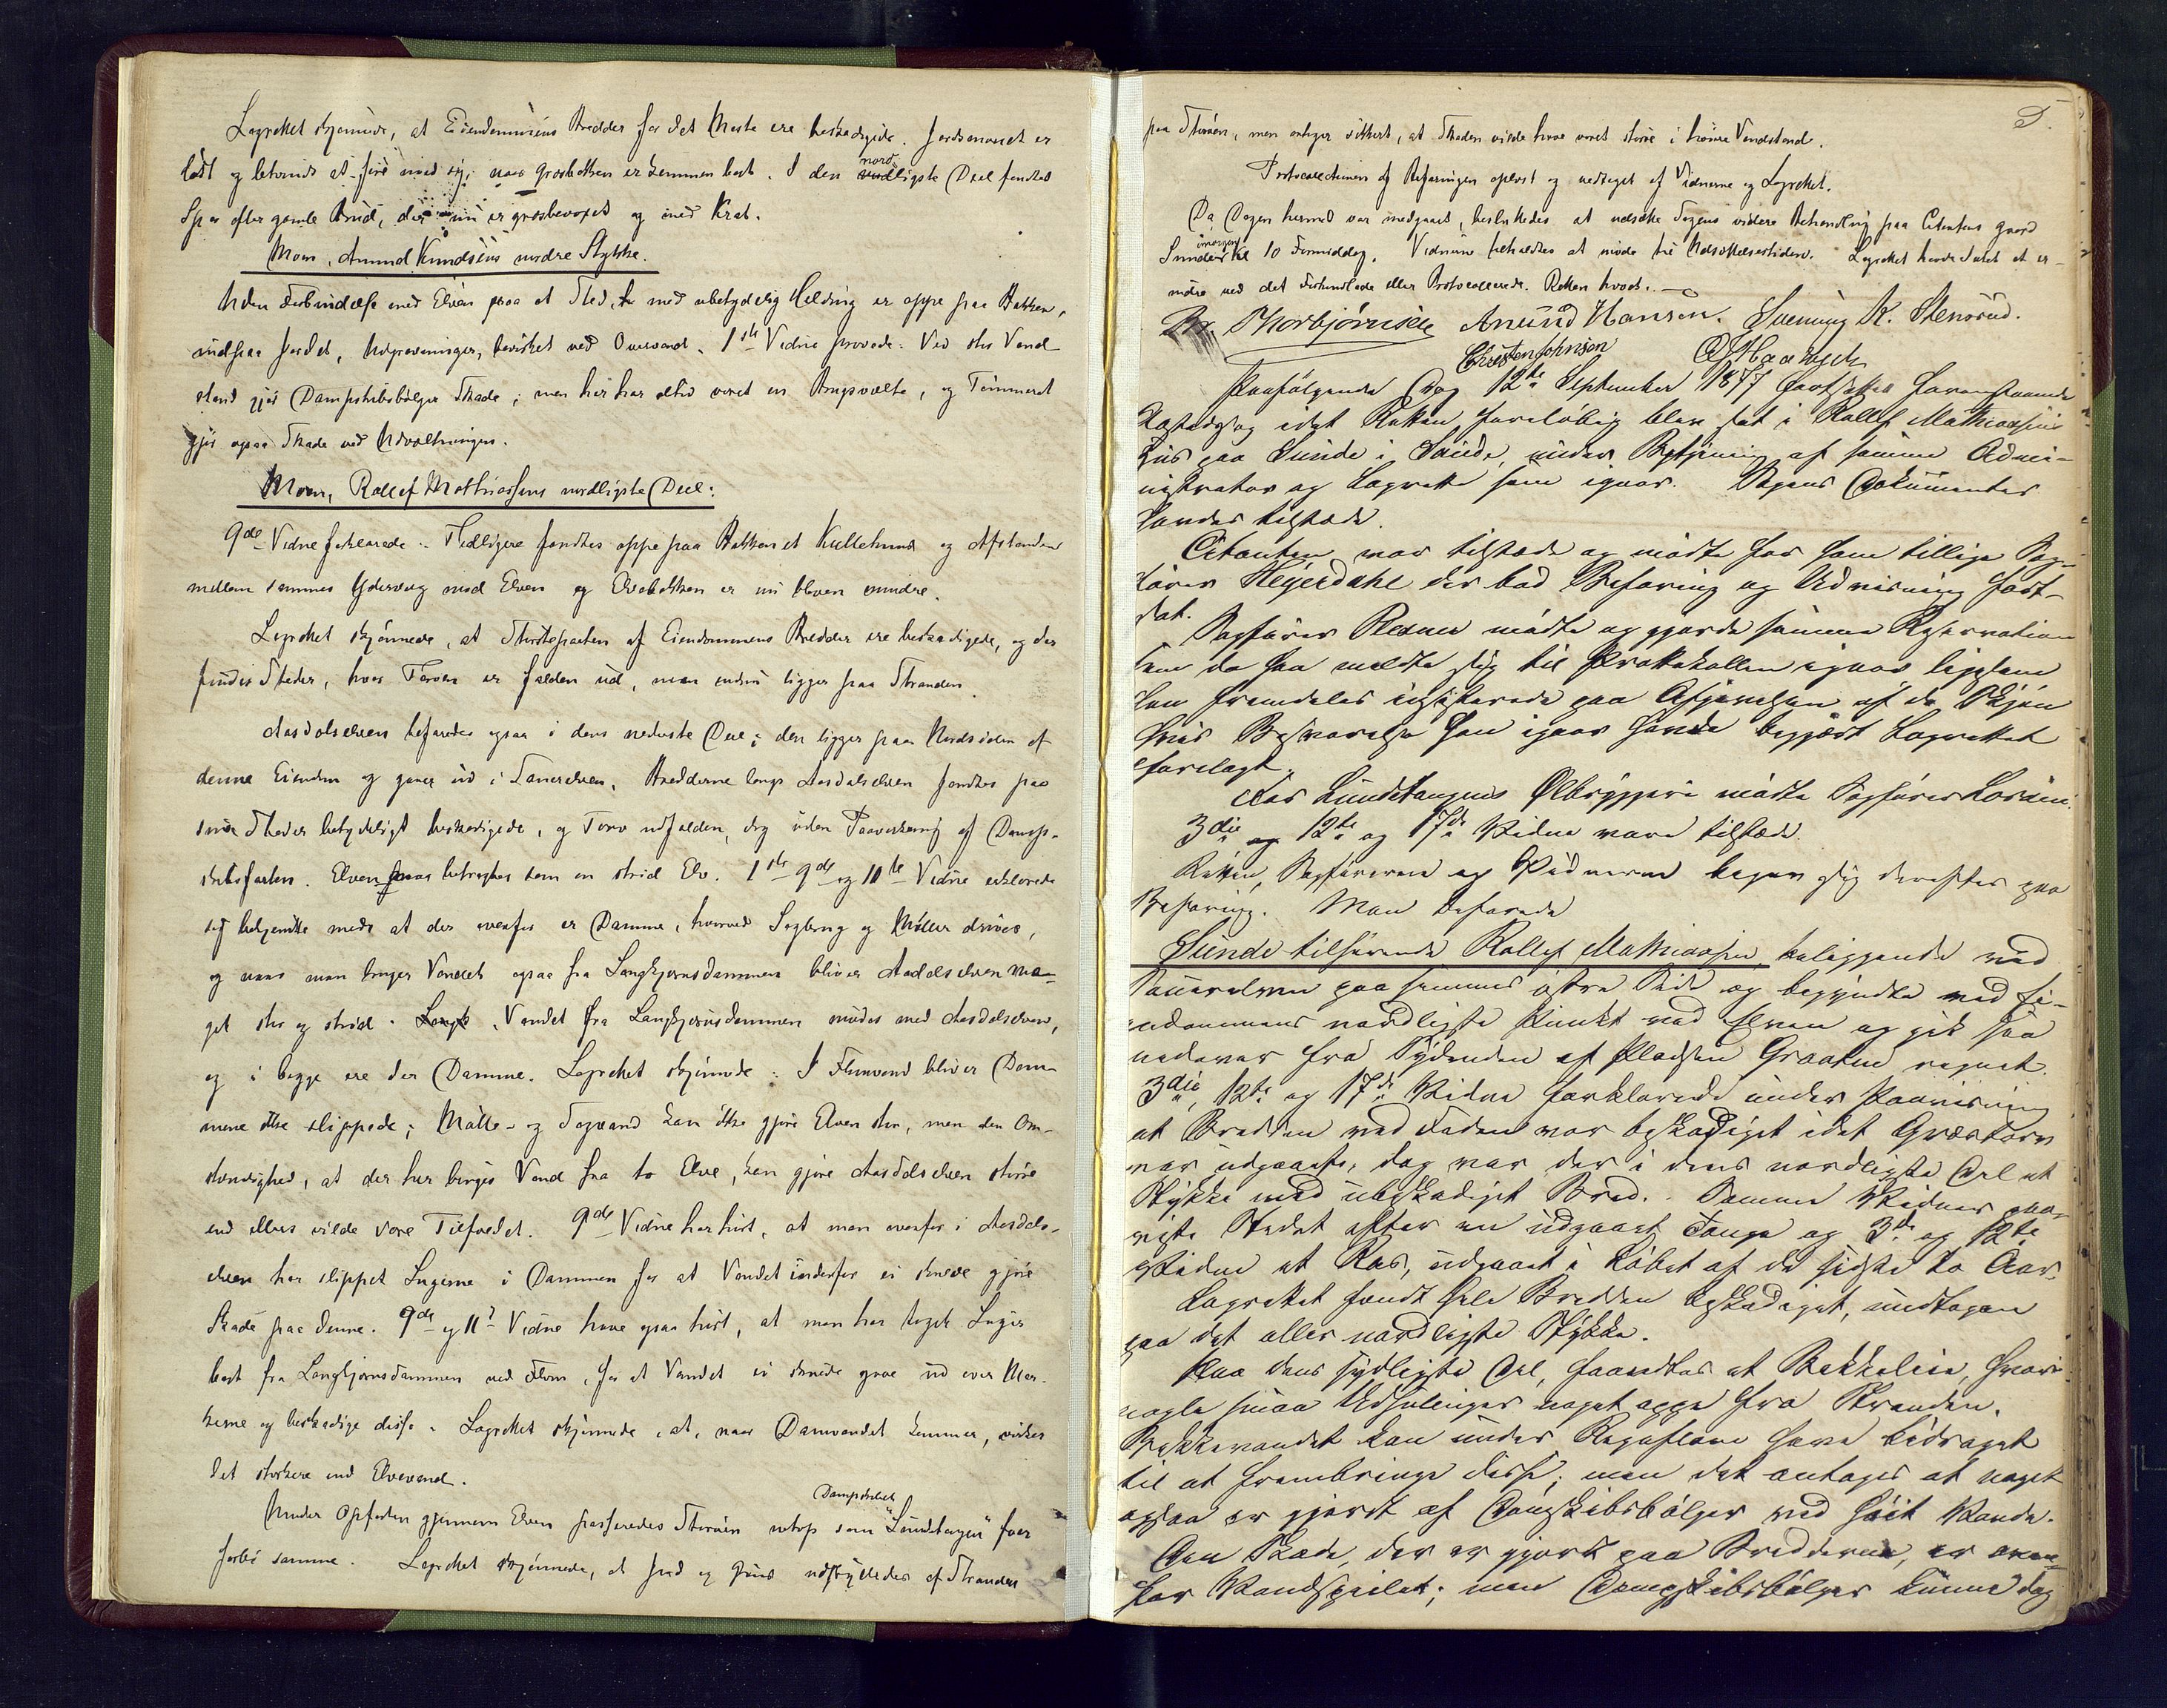 Lagrettet skjønnede, at Eiendommens Bredder for det Meste ere beskadigede. Jordsmonnet er
løst og letvindt at føre med sig, naar græsbakken er kommen bort. I den nordligste Deel fandtes
Spor efter gamle Brud, der nu er græsbevoxet og med Krat.
Moen, Amund Knudsens nordre Stykke.
Uden Forbindelse med Elven paa et Sted, med ubetydelig Helding er oppe paa Bakken,
indpaa Jordet, Udgravninger, bevirket ved Overvand. 1ste Vidne provede: Ved stor Vand-
stand gjør Dampskibsbølger Skade; men her har altid været en Brugsvælte, og Tømmeret
gjør ogsaa Skade ved Udvæltningen.
Moen, Rollef Mathiassens nordligste Deel:
9de Vidne forklarede: Tidligere fandtes oppe paa Bakken et Kullebund og Afstanden
mellem sammes Ydervæg mod Elven og Elvebakken er nu bleven mindre.
Lagrettet skjønnede, at Størsteparten af Eiendommens Bredder ere beskadigede, og der
findes Steder, hvor Torven er falden ud, men endnu ligger paa Stranden.
Aasdalselven befaredes ogsaa i dens nederste Deel; den ligger paa Nordsiden af
denne Eiendom og gaaer ud i Sauerelven. Bredderne langs Aasdalselven fandtes paa
sine Steder betydeligt beskadigede, og Torv udfalden, dog uden Paavirkning af Damp-
skibsfarten. Elven maa betragtes som en strid Elv. 1ste 9de og 11te Vidne erklærede
sig bekjendte med at der ovenfor er Damme, hvorved Sagbrug og Møller drives,
og naar man bruger Vandet ogsaa fra Langkjernsdammen bliver Aasdalselven me-
get stor og strid. Vandet fra Langkjernsdammen mødes med Aasdalselven,
og i begge ere der Damme. Lagrettet skjønnede: I Flomvand bliver Dam-
mene ikke slippede; Mølle- og Sagvand kan ikke gjøre Elven stor, men den Om-
stændighed, at der her bruges Vand fra to Elve, kan gjøre Aasdalselven større
end ellers vilde være Tilfældet. 9de Vidne har hørt, at man ovenfor i Aasdals-
elven har slippet Lugerne i Dammen for at Vandet indenfor ei skulde gjøre
Skade paa denne. 9de og 11te Vidne have ogsaa hørt, at man har taget Luger
bort fra Langkjernsdammen ved Flom, for at Vandet ei skulde grave ud over Mar-
kerne og beskadige disse. Lagrettet skjønnede, at, naar Damvandet kommer, virker
det stærkere end Elvevand.
Under Opfarten gjennem Elven passeredes Storøen netop som Dampskibet "Lundetangen" foer
forbi samme. Lagrettet skjønnede, at Jord og Gruus udskylledes af Stranden
5.
paa Storøen, men antager sikkert, at Skaden vilde have været større i høiere Vandstand.
Protocollationen af Befaringen oplæst og vedtaget af Vidnerne og Lagrettet.
Da Dagen hermed var medgaaet, besluttedes at udsætte Sagens videre Behandling paa Citantens gaard
Sunde imorgen Kl 10 Formiddag. Vidnerne tilholdtes at møde til Udsættelsestiden. Lagrettet havde Intet at er-
indre ved det Forhandlede eller Protocollerede. Retten hævet.
Thorbjørnsen Anund Hansen. Svenung K. Stensrud.
Christen Johnsen
Paafølgende Dag 12te September 1877 fortsattes foranstaaende
Aastedssag idet Retten foreløbig blev sat i Rollef Mathiassens
Huus paa Sunde i Saude, under Betjening af samme Admi-
nistrator og Lagrette som igaar. Sagens Dokumenter
havdes tilstede.
Citanten var tilstede og mødte for ham tillige Sag-
fører Heyerdahl der bad Befaring og Udvisning fort-
sat.
Sagfører Plesner mødte og gjorde samme Reservation
som da han meldte sig til Protokollen igaar ligesom
han fremdeles insisterede paa Afgjørelsen af de Skjøn
hvis Besvarelse han igaar havde begjært Lagrettet
forelagt.
For Lundetangens Ølbryggeri mødte Sagfører Lorden.
3die 12te og 17de Vidne vare tilstede.
Retten, Sagførerne og Vidnerne begav sig derefter paa
Befaring. Man befarede
Sunde tilhørende Rollef Mathiassen, beliggende ved
Sauerelven paa sammes østre Side og begyndte ved Ei-
endommens nordligste Punkt ved Elven og gik saa
nedover fra Sydenden af Pladsen Graaten regnet.
3die, 12te og 17de Vidne forklarede under Paavisning
at Bredden ved Foden var beskadiget idet Græstorv
var udgaaet, dog var der i dens nordligste Del et
Stykke med ubeskadiget Bred. Samme Vidner paa-
viste Stedet efter en udgaaet Tange og 3die og 12te
Vidne et Ras, udgaaet i Løbet af de sidste to Aar.
Lagrettet fandt hele Bredden beskadiget, undtagen
paa det aller nordligste Stykke.
Paa dens sydligste Del, fandtes et Bækkeleie, hvori
nogle smaa Udhulinger noget oppe fra Stranden.
Bækkevandet kan under Regnflom have bidraget
til at frembringe disse; men det antages at noget
ogsaa er gjort af Dampskibsbølger ved høit Vande.
Den Skade, der er gjort paa Bredderne, er oven-
for Vandspeilet; men Dampskibsbølger kunne dog